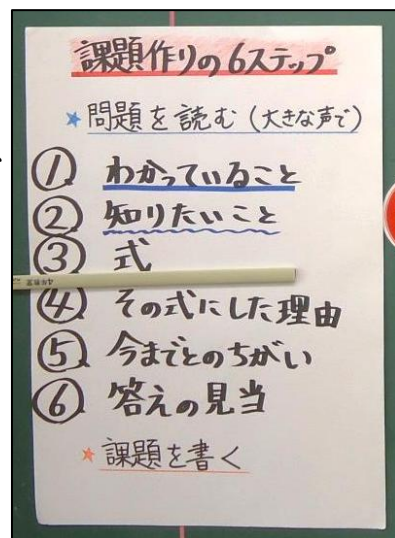 課題作りの6ステップ
★問題を読む(大きな声で)
① わかっていること
② 知りたいこと
③ 式
④ その式にした理由
⑤ 今までとのちがい
⑥ 答えの見当
★課題を書く